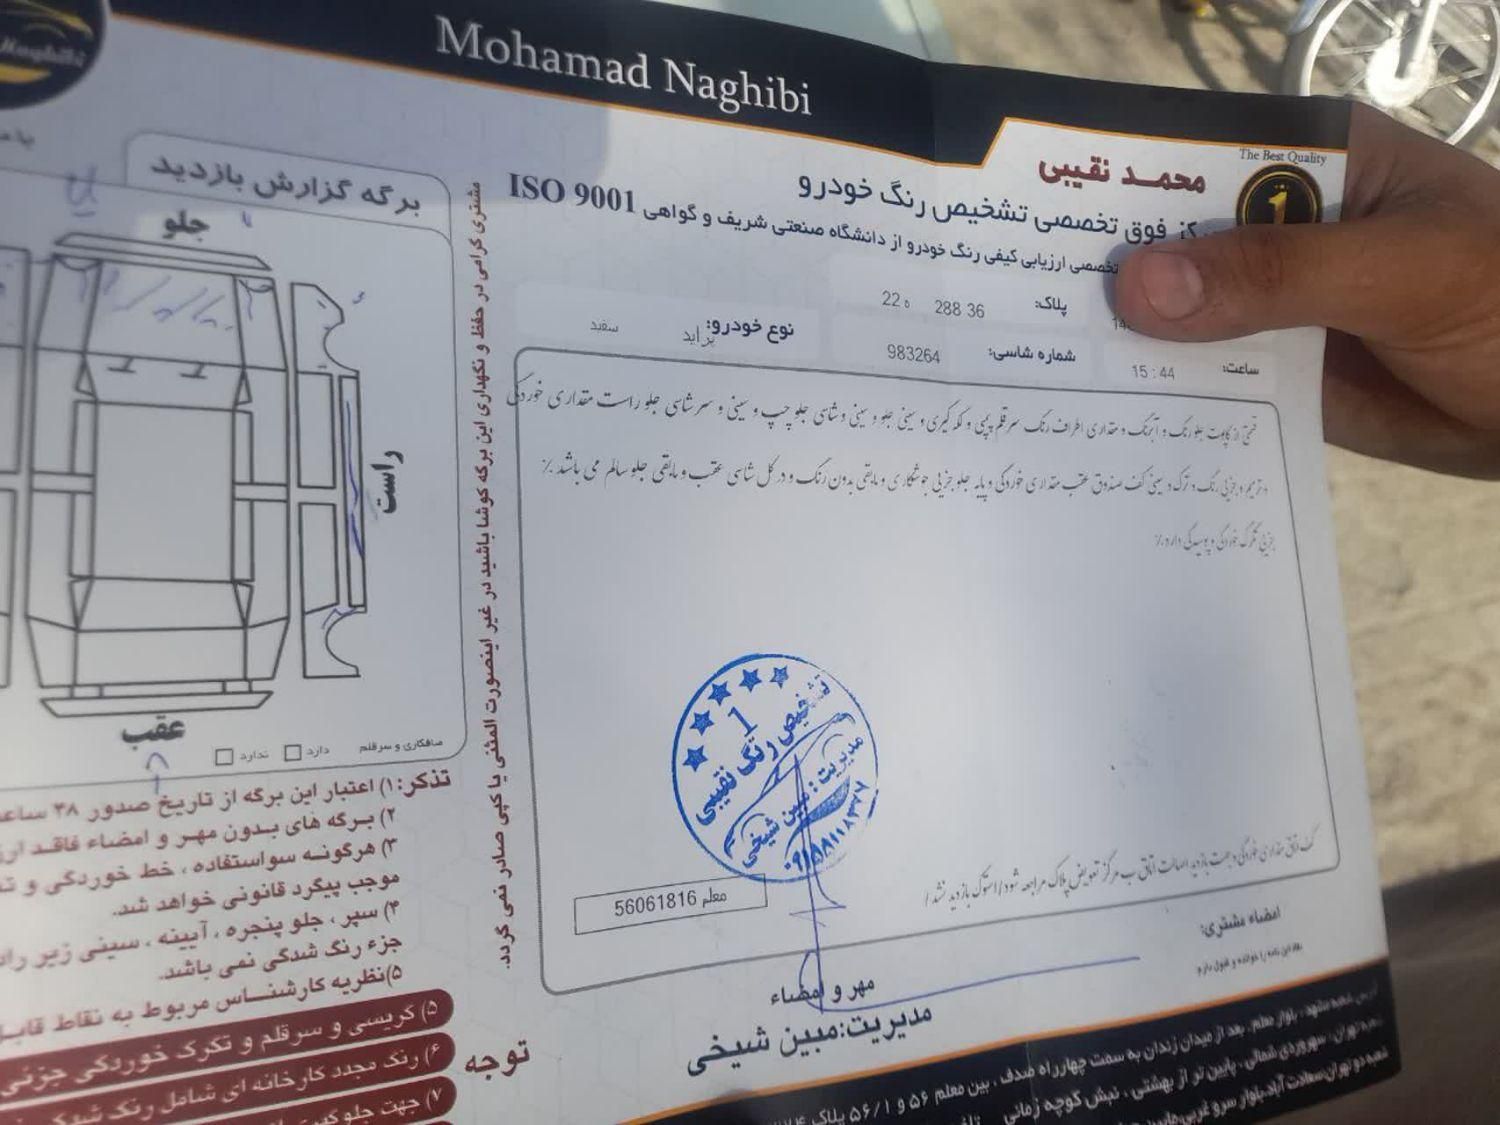 Mohamad Naghibi
Naghibi
The Best Quality
1
محمد نقیبی
مرکز فوق تخصصی تشخیص رنگ خودرو
تخصصی ارزیابی کیفی رنگ خودرو از دانشگاه صنعتی شریف و گواهی ISO 9001
پلاک: 36 288 ه 22
ساعت: 15:44
شماره شاسی: 983264
نوع خودرو: پراید سفید
قسمتی از کاپوت جلو رنگ و آبرنگ و مقداری اطراف رنگ سر قلم پیچی و لکه گیری و سینی جلو و سینی و شاسی جلو چپ و سینی و سر شاسی جلو راست مقداری خوردگی
و ترمیم و جزئی رنگ و ترک و سینی کف صندوق عقب مقداری خوردگی و پایه جلو جزئی جوشکاری و مابقی بدون رنگ و در کل شاسی عقب و مابقی جلو سالم می باشد ٪
جزئی تگرگ خوردگی و پوسیدگی دارد ٪
تشخیص رنگ نقیبی
1
مدیریت: مبین شیخی
معلم 56061816
مقداری خوردگی و جهت بازدید اصالت اتاق ب مرکز تعویض پلاک مراجعه شود / استوک بازدید نشد /
امضاء مشتری:
مفاد این نامه را خوانده و قبول دارم
مهر و امضاء
مدیریت:مبین شیخی
مشتری گرامی در حفظ و نگهداری این برگه کوشا باشید در غیر اینصورت المثنی یا کپی صادر نمی گردد.
برگه گزارش بازدید
جلو
راست
عقب
صافکاری و سرقلم دارد ندارد
تذکر: ۱) اعتبار این برگه از تاریخ صدور ۴۸ ساعت
۲) برگه های بدون مهر و امضاء فاقد
۳) هرگونه سواستفاده ، خط خوردگی و
موجب پیگرد قانونی خواهد شد.
۴) سپر ، جلو پنجره ، آیینه ، سینی زیر
جزء رنگ شدگی نمی باشد.
۵)نظریه کارشناس مربوط به نقاط
توجه
۵) گریسی و سرقلم و تگرگ خوردگی جزئی
۶) رنگ مجدد کارخانه ای شامل رنگ
۷) جهت
آدرس: شعبه مشهد ، بلوار معلم ، بعد از میدان زندان به سمت چهارراه صدف ، بین معلم ۵۴ و ۵۶/۱ پلاک
شعبه تهران: سهروردی شمالی ، پایین تر از بهشتی ، نبش کوچه زمانی
شعبه دو تهران:سعادت آباد،بلوار سرو غربی